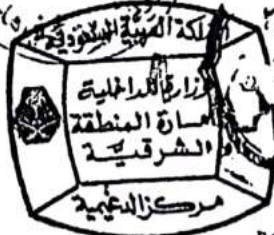 المملكة العربية السعودية
وزارة الداخلية
إمارة المنطقة
الشرقية
مركز الدغيمية